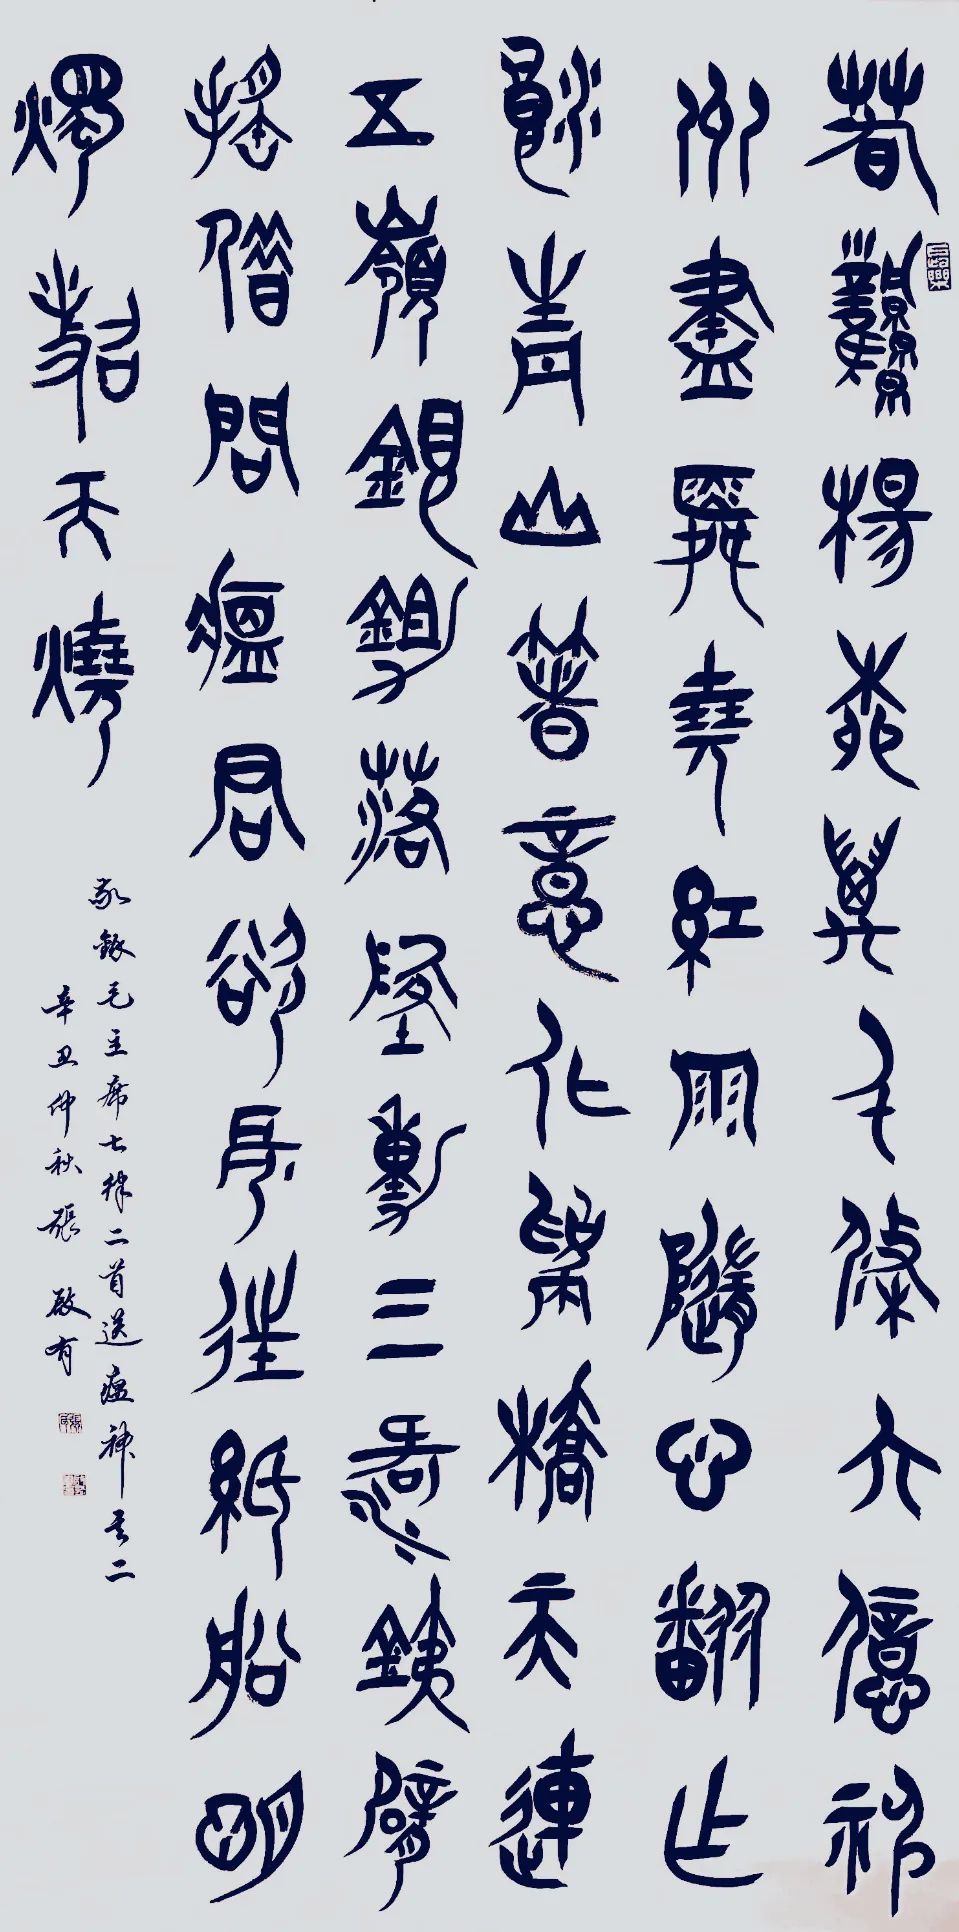 春風楊柳萬千條六億神
州盡舜堯紅雨隨心翻作
浪青山著意化為橋天連
五嶺銀鋤落地動三河鐵臂
搖借問瘟君欲何往紙船明
燭照天燒
敬錄毛主席七律二首送瘟神其二
辛丑仲秋張啟有